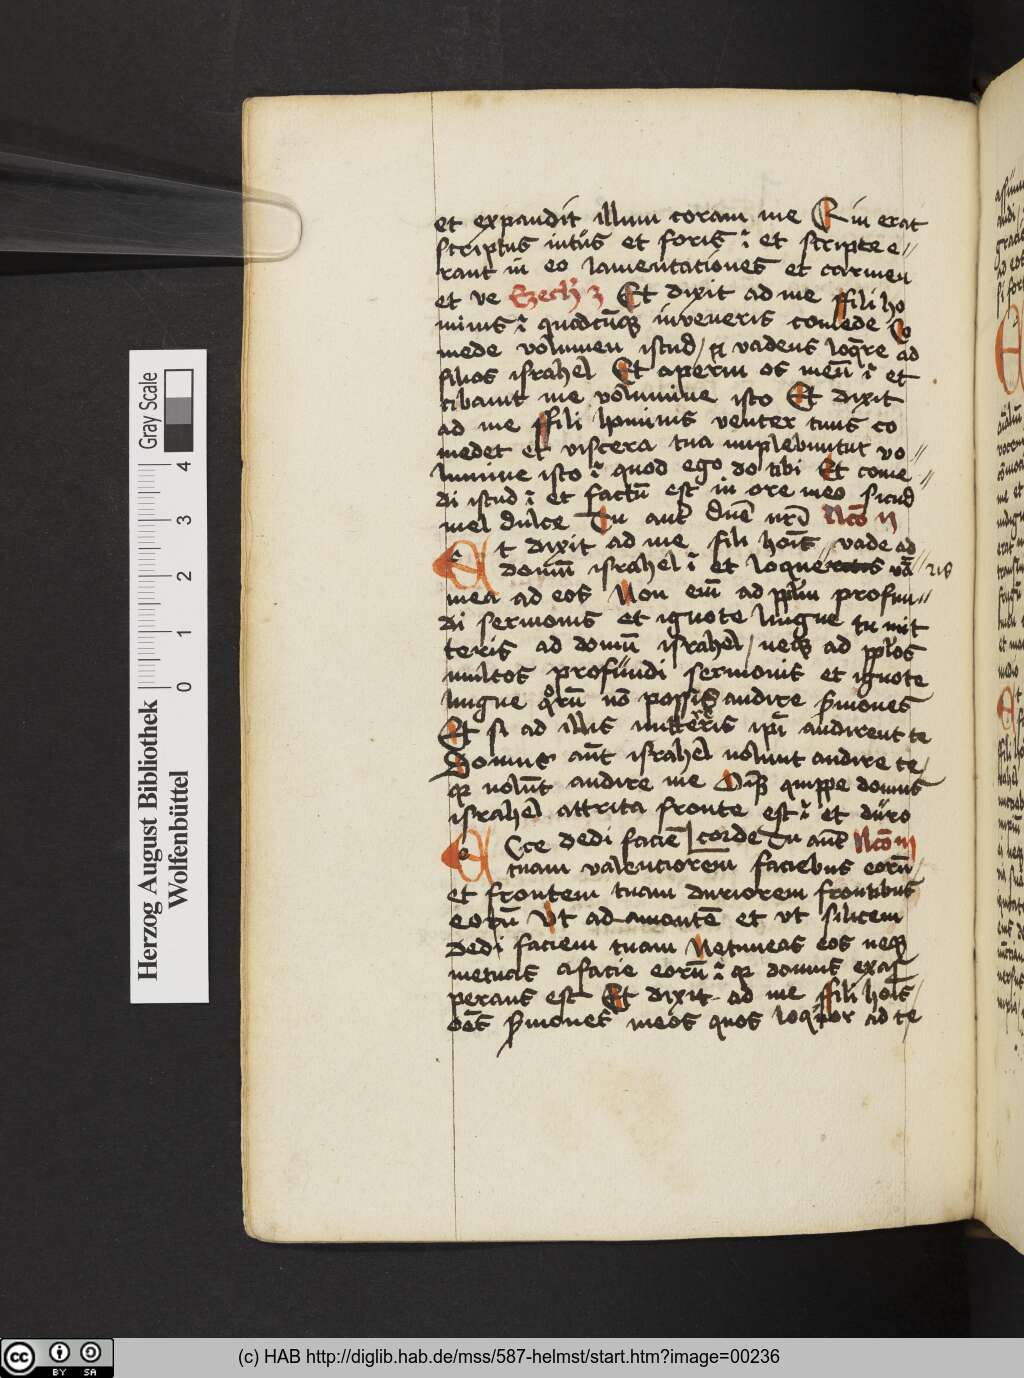 et expandit illum coram me Q in erat
scriptus intus et foris ⁊ et scripte e//
rant in eo lamentaciones et carmen
et ve Ezech' 3 Et dixit ad me ffili ho
minis ⁊ quodcūqꝫ inveneris comede Co
mede volumen istud / ⁊ vadens loqre ad
filios israhel Et aperui os meū ⁊ et
cibauit me volumine isto Et dixit
ad me ffili hominis venter tuus co
medet et viscera tua implebuntur vo//
lumine isto ⁊ quod ego do tibi Et come//
di istud ⁊ et factū est in ore meo sicud
mel dulce Tu aut dnē nrī Lcō II
Et dixit ad me fili hoīs vade ad
domū israhel ⁊ et loque vā// ris
mea ad eos Non eīm ad pplm profun//
di sermonis et ignote lingue tu mit
teris ad domū israhel / neqꝫ ad pplos
multos profundi sermonis et ignote
lingue qorū nō possis audire s̄mones
Et si ad illos mitteris ipi audirent te
Domus aūt israhel nolunt audire te /
qꝛ nolūt audire me Oīs quippe domus
israhel attrita fronte est ⁊ et duro
Ecce dedi faciē | corde Tu aūt Lcō III
tuam valenciorem faciebus eorū /
et frontem tuam duriorem frontibus
eorū Vt adamantē et vt silicem
dedi faciem tuam Ne timeas eos neqꝫ
metuas a facie eorū ⁊ qꝛ domus exas
perans est Et dixit ad me ffili hoīs /
oēs s̄mones meos quos loqor ad te
Gray Scale
0 1 2 3 4
Herzog August Bibliothek
Wolfenbüttel
cc BY SA
(c) HAB http://diglib.hab.de/mss/587-helmst/start.htm?image=00236